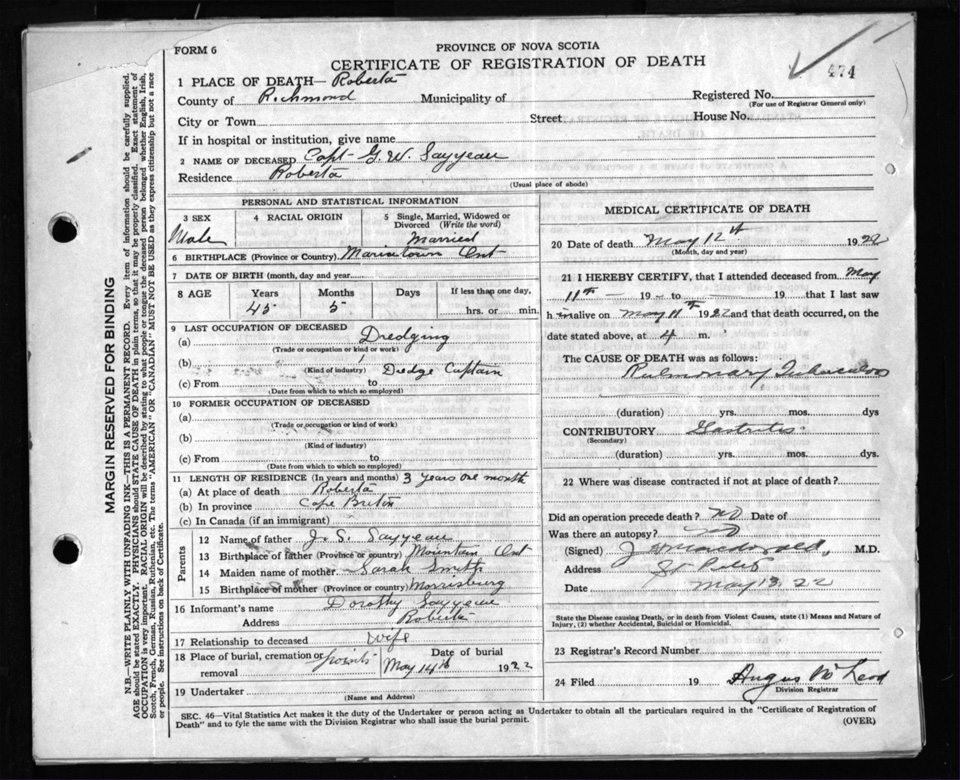 FORM 6
PROVINCE OF NOVA SCOTIA
CERTIFICATE OF REGISTRATION OF DEATH
474
1 PLACE OF DEATH— Roberta
County of Richmond Municipality of Registered No.
(For use of Registrar General only)
City or Town Street House No.
If in hospital or institution, give name
2 NAME OF DECEASED Capt G. W. Sayyeau
Residence Roberta
(Usual place of abode)
MARGIN RESERVED FOR BINDING
N.B.—WRITE PLAINLY WITH UNFADING INK—THIS IS A PERMANENT RECORD. Every item of information should be carefully supplied.
AGE should be stated EXACTLY. PHYSICIANS should STATE CAUSE OF DEATH in plain terms, so that it may be properly classified. Exact statement of
OCCUPATION is very important. RACIAL ORIGIN will be described by stating to what people or tongue the deceased person belonged whether English, Irish,
Scotch, French, German, Russian, Ruthenian, etc. The terms "AMERICAN" OR "CANADIAN" MUST NOT BE USED as they express citizenship but not a race
or people. See instructions on back of Certificate.
PERSONAL AND STATISTICAL INFORMATION
3 SEX 4 RACIAL ORIGIN 5 Single, Married, Widowed or
Divorced (Write the word)
Male Married
6 BIRTHPLACE (Province or Country) Mariatown Ont
7 DATE OF BIRTH (month, day and year)
8 AGE Years Months Days If less than one day,
45 5 hrs. or min.
9 LAST OCCUPATION OF DECEASED
(a) Dredging
(Trade or occupation or kind or work)
(b) Dredge Captain
(Kind of industry)
(c) From to
(Date from which to which so employed)
10 FORMER OCCUPATION OF DECEASED
(a)
(Trade or occupation or kind of work)
(b)
(Kind of industry)
(c) From to
(Date from which to which so employed)
11 LENGTH OF RESIDENCE (In years and months) 3 years one month
(a) At place of death Roberta
(b) In province Cape Breton
(c) In Canada (if an immigrant)
Parents
12 Name of father J. S. Sayyeau
13 Birthplace of father (Province or country) Mountain Ont
14 Maiden name of mother Sarah Smith
15 Birthplace of mother (Province or country) Morrisburg
16 Informant's name Dorothy Sayyeau
Address Roberta
17 Relationship to deceased Wife
18 Place of burial, cremation or Date of burial
removal May 14th 1922
19 Undertaker
(Name and Address)
MEDICAL CERTIFICATE OF DEATH
20 Date of death May 12th 1922
(Month, day and year)
21 I HEREBY CERTIFY, that I attended deceased from May
11th — 19 — to — 19 that I last saw
h im alive on May 11th 1922 and that death occurred, on the
date stated above, at 4 m.
The CAUSE OF DEATH was as follows:
Pulmonary Tuberculosis
(duration) yrs. mos. dys
CONTRIBUTORY Gastritis
(Secondary)
(duration) yrs. mos. dys.
22 Where was disease contracted if not at place of death?
Did an operation precede death? no Date of
Was there an autopsy? no
(Signed) M.D.
Address St Peters
Date May 13, 22
State the Disease causing Death, or in Death from Violent Causes, state (1) Means and Nature of
Injury, (2) whether Accidental, Suicidal or Homicidal.
23 Registrar's Record Number
24 Filed 19 Angus McLeod
Division Registrar
SEC. 46—Vital Statistics Act makes it the duty of the Undertaker or person acting as Undertaker to obtain all the particulars required in the "Certificate of Registration of
Death" and to fyle the same with the Division Registrar who shall issue the burial permit.
(OVER)